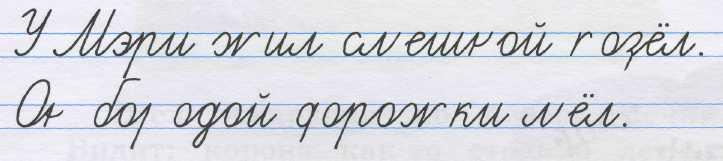 У Мэри жил смешной козёл.
Он бородой дорожки мёл.